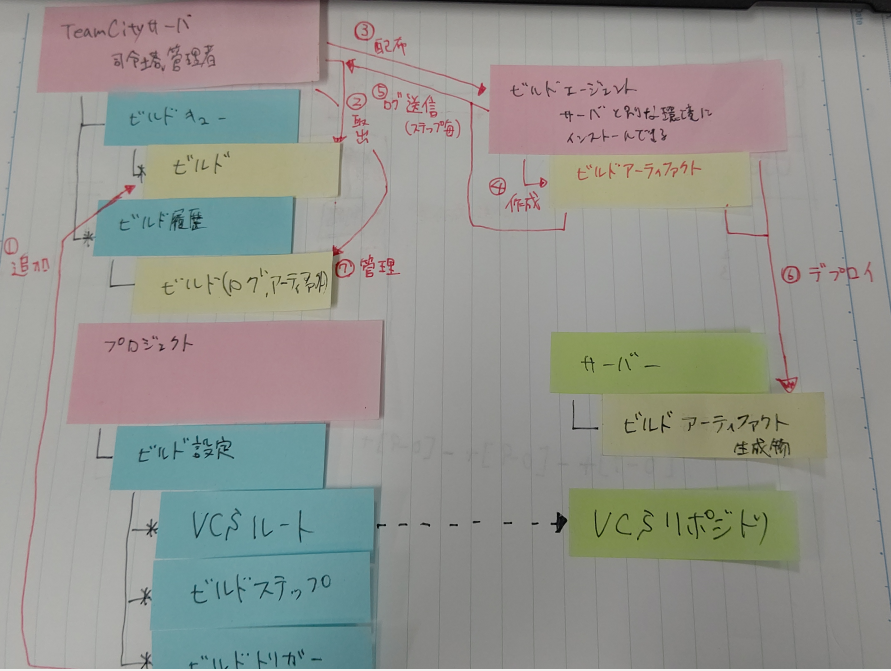 TeamCityサーバ
司令塔、管理者
③
配布
②
取出
⑤
ログ送信
(ステップ毎)
ビルドキュー
*
ビルド
*
ビルド履歴
ビルド(ログ,アーティファクト)
①
追加
⑦管理
ビルドエージェント
サーバと別な環境に
インストールできる
④
作成
ビルドアーティファクト
⑥デプロイ
プロジェクト
ビルド設定
*
VCSルート
*
ビルドステップ
*
ビルドトリガー
サーバー
ビルドアーティファクト
生成物
VCSリポジトリ